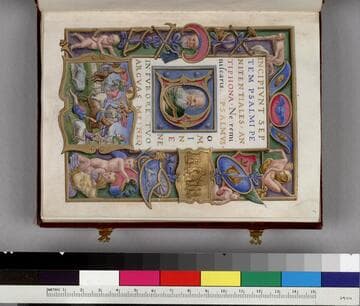 INCIPIVNT SEP
TEM PSALMI PE
NITENTIALES. AN
TIPHONA. Ne remi
niscaris. PSALMVS
D O
M
I
N
E NE
IN FVRORE TVO
ARGVAS ME NEQ
1 2 3 4 5 6 7 8 9 10 11 12 13 14 15